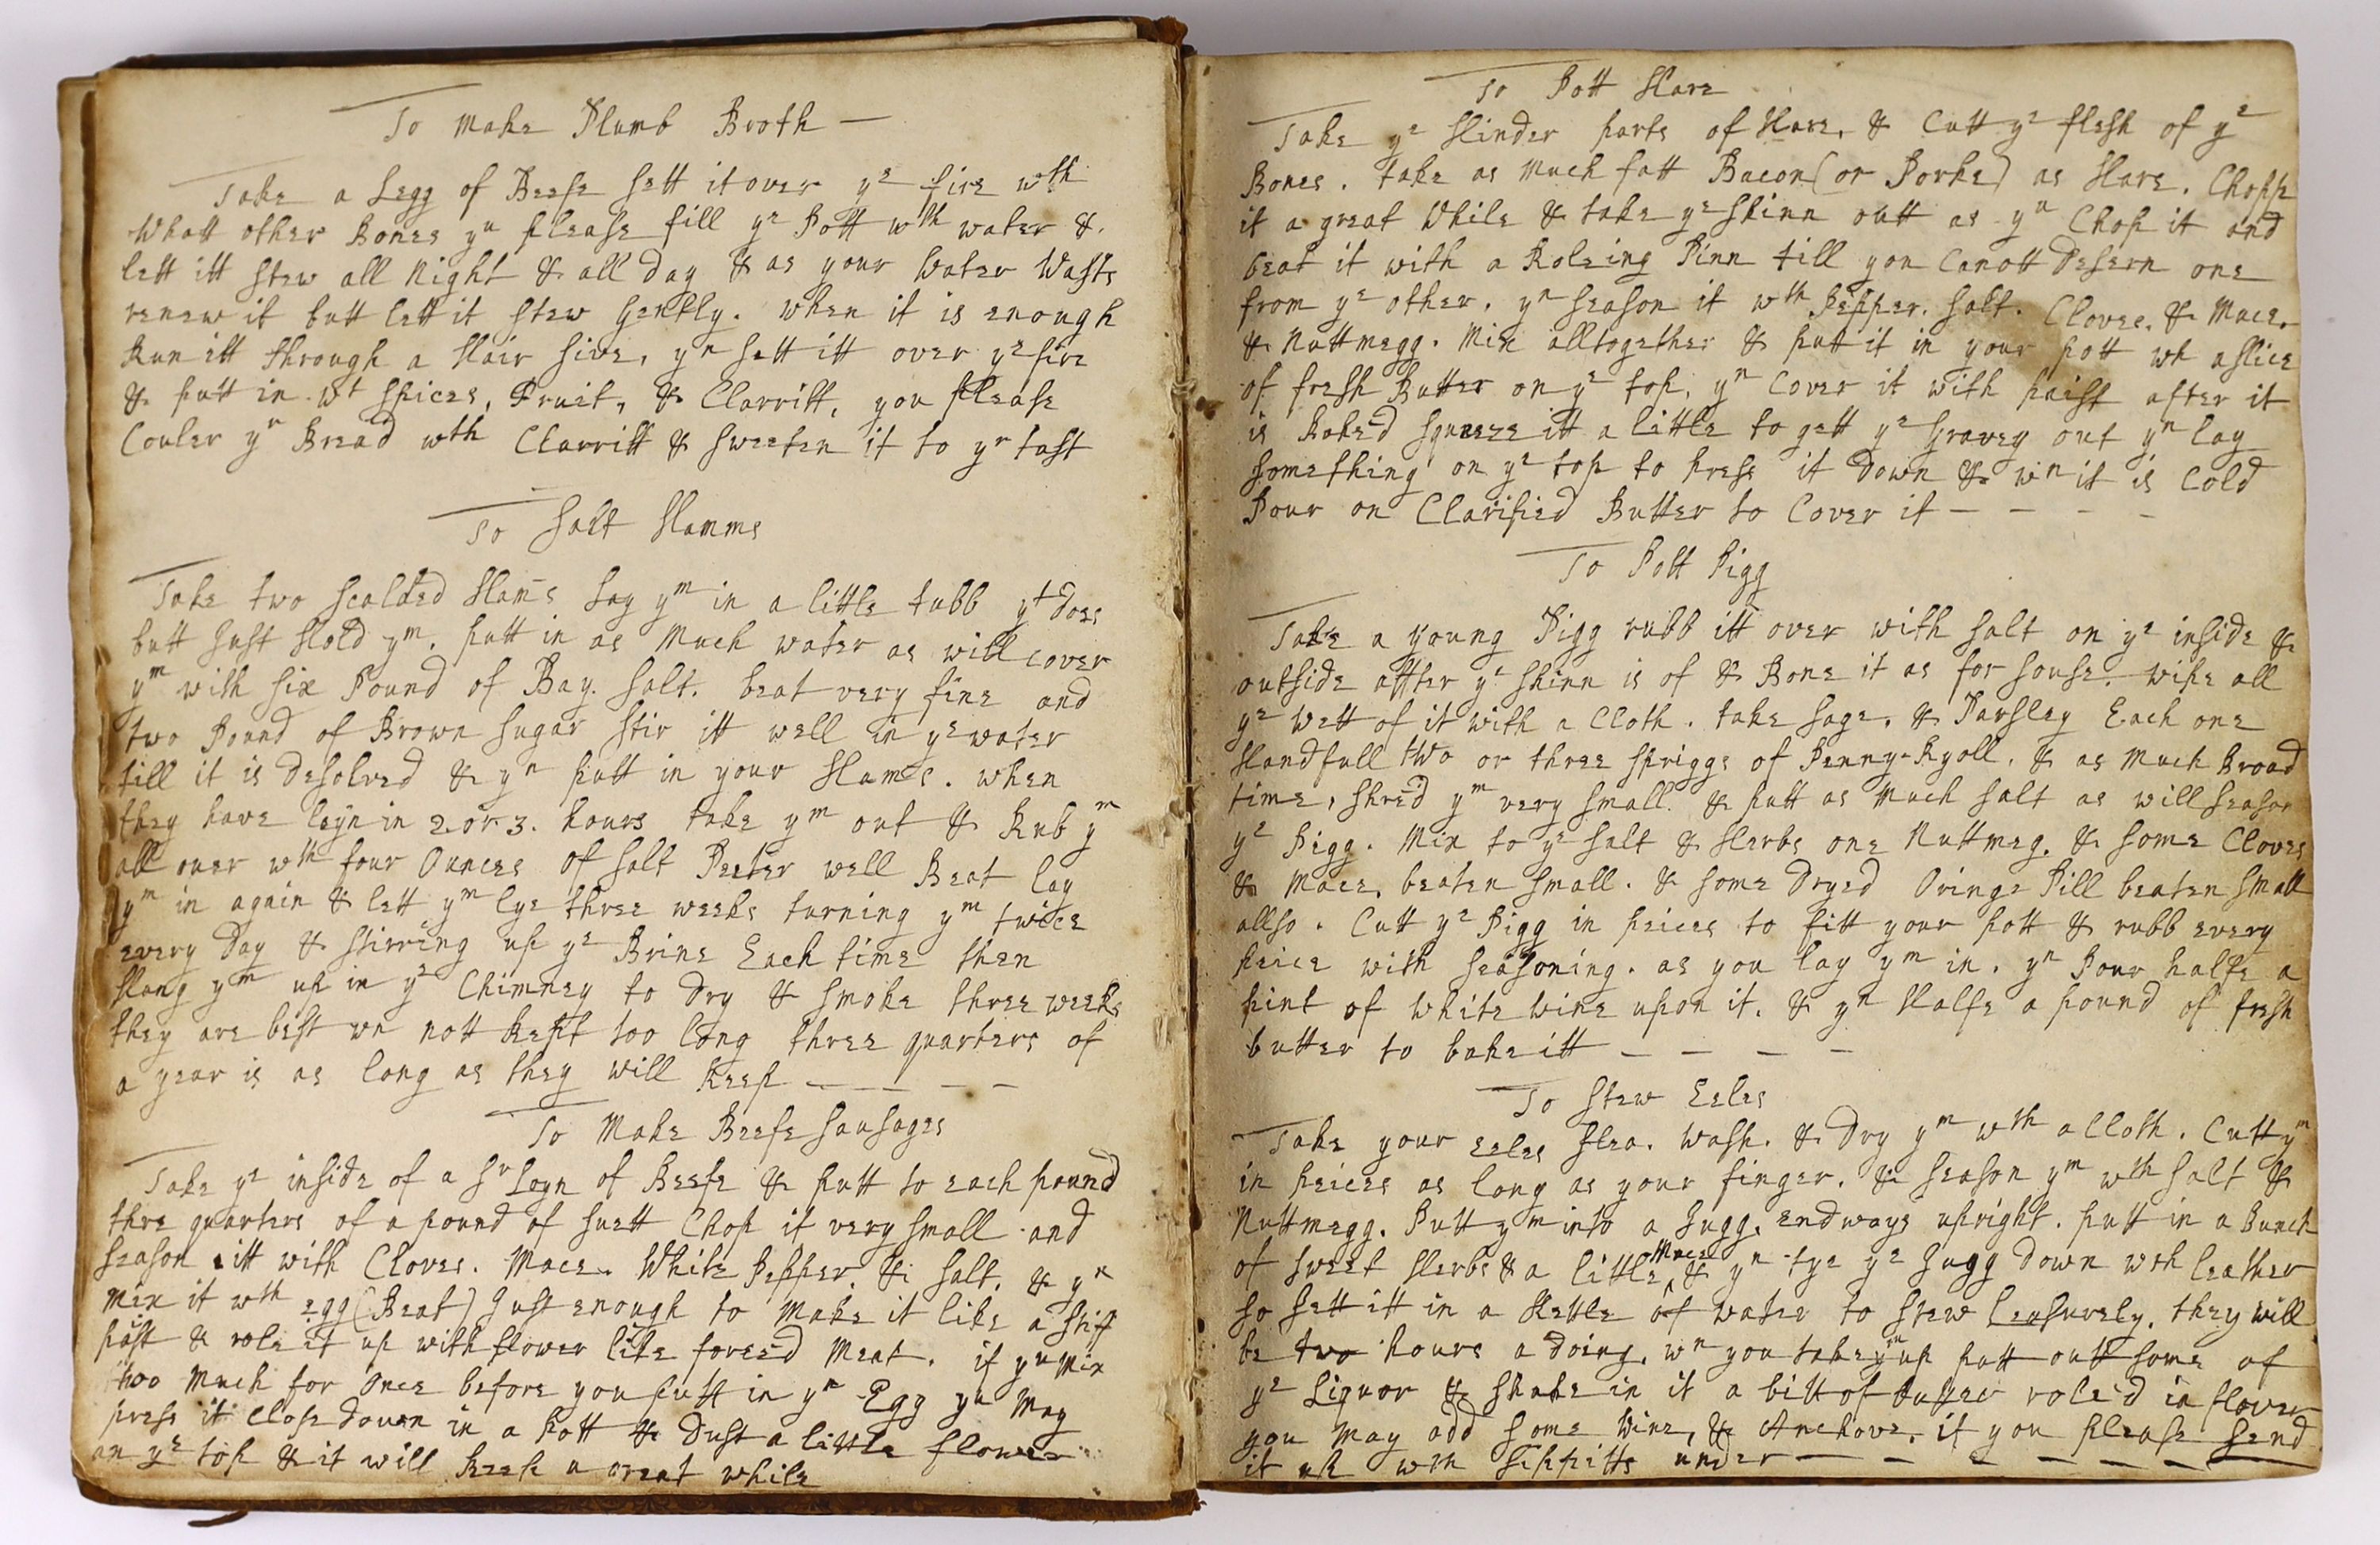 To Make Plumb Broth —
Take a Legg of Beefe sett it over yᵉ fire wth
Whatt other Bones yᵘ please fill yᵉ Pott wth water &
lett itt stew all Night & all Day & as your Water Wasts
renew it butt lett it stew Gently. when it is enough
Run itt through a Hair sive, yⁿ sett itt over yᵉ fire
& putt in wᵗ spices, Fruit, & Clarritt, you please
Couler yʳ Bread wth Clarritt & sweeten it to yʳ tast
To Salt Hamms
Take two scalded Ham̄s Lay yᵐ in a little tubb yᵗ does
butt Just Hold yᵐ. putt in as Much water as will cover
yᵐ with six Pound of Bay. salt. beat very fine and
two Pound of Brown sugar stir itt well in yᵉ water
till it is Desolved & yⁿ putt in your Ham̄s. when
they have leyn in 2 or 3. hours take yᵐ out & Rub yᵐ
all over wth four Ounces of salt Peeter well Beat lay
yᵐ in again & lett yᵐ lye three weeks turning yᵐ twice
every Day & stirring up yᵉ Brine Each time then
Hang yᵐ up in yᵉ Chimney to Dry & smoke three weeks
they are best wn nott Kept too long three quarters of
a year is as long as they will keep — — — —
To Make Beefe Sausages
Take yᵉ inside of a Sʳ Loyn of Beefe & putt to each pound
thre quarters of a pound of suett Chop it very small and
season itt with Cloves. Mace. White Pepper. & salt. & yⁿ
Mix it wth egg (Beat) Just enough to Make it like a stif
past & role it up with flower like forced Meat. if yᵘ Mix
two Much for Once before you putt in yʳ Egg yᵘ May
press it close down in a Pott & Dust a little flower
on yᵉ top & it will keep a great while
To Pott Hare
Take yᵉ Hinder parts of Hare, & Cutt yᵉ flesh of yᵉ
Bones. take as Much fatt Bacon (or Porke) as Hare. Chopp
it a great While & take yᵉ skinn outt as yᵘ Chop it and
beat it with a Roleing Pinn till you Canott Desern one
from yᵉ other. yⁿ season it wth Pepper. salt. Cloves. & Mace.
& Nuttmegg. Mix alltogether & putt it in your pott wh a slice
of fresh Butter on yᵉ top, yⁿ Cover it with paist after it
is Baked squeeze itt a little to gett yᵉ Gravey out yⁿ lay
something on yᵉ top to press it Down & wⁿ it is Cold
Pour on Clarified Butter to Cover it — — — —
To Pott Pigg
Take a young Pigg rubb itt over with salt on yᵉ inside &
outside affter yᵉ skinn is of & Bone it as for souse. wipe all
yᵉ Wett of it with a Cloth. take sage, & Parsley Each one
Handfull two or three spriggs of Penny-Ryoll, & as Much Broad
time, shred yᵐ very small & putt as Much salt as will season
yᵉ Pigg. Mix to yᵉ salt & Herbs one Nuttmeg. & some Cloves
& Mace, beaten small. & some Dryed Oringe Pill beaten small
allso. Cutt yᵉ Pigg in peices to fitt your pott & rubb every
peice with seasoning. as you lay yᵐ in. yⁿ Pour halfe a
pint of White wine upon it. & yⁿ Halfe a pound of fresh
butter to bake itt — — — —
To Stew Eeles
Take your Eeles flea. Wash. & Dry yᵐ wth a Cloth. Cutt yᵐ
in peices as long as your finger. & season yᵐ wth salt &
Nuttmegg. Putt yᵐ into a Jugg. endways upright. putt in a Bunch
of sweet Herbs & a little ^Mace & yⁿ tye yᵉ Jugg down wth leather
so sett itt in a Kettle of water to stew Leasurely. they will
be two hours a doing. wⁿ you take yᵐ up putt outt some of
yᵉ Liquor & shake in it a bitt of butter role'd in flower
you May add some Wine, & Anchove. if you please send
it up wth Sippitts under — — — — —